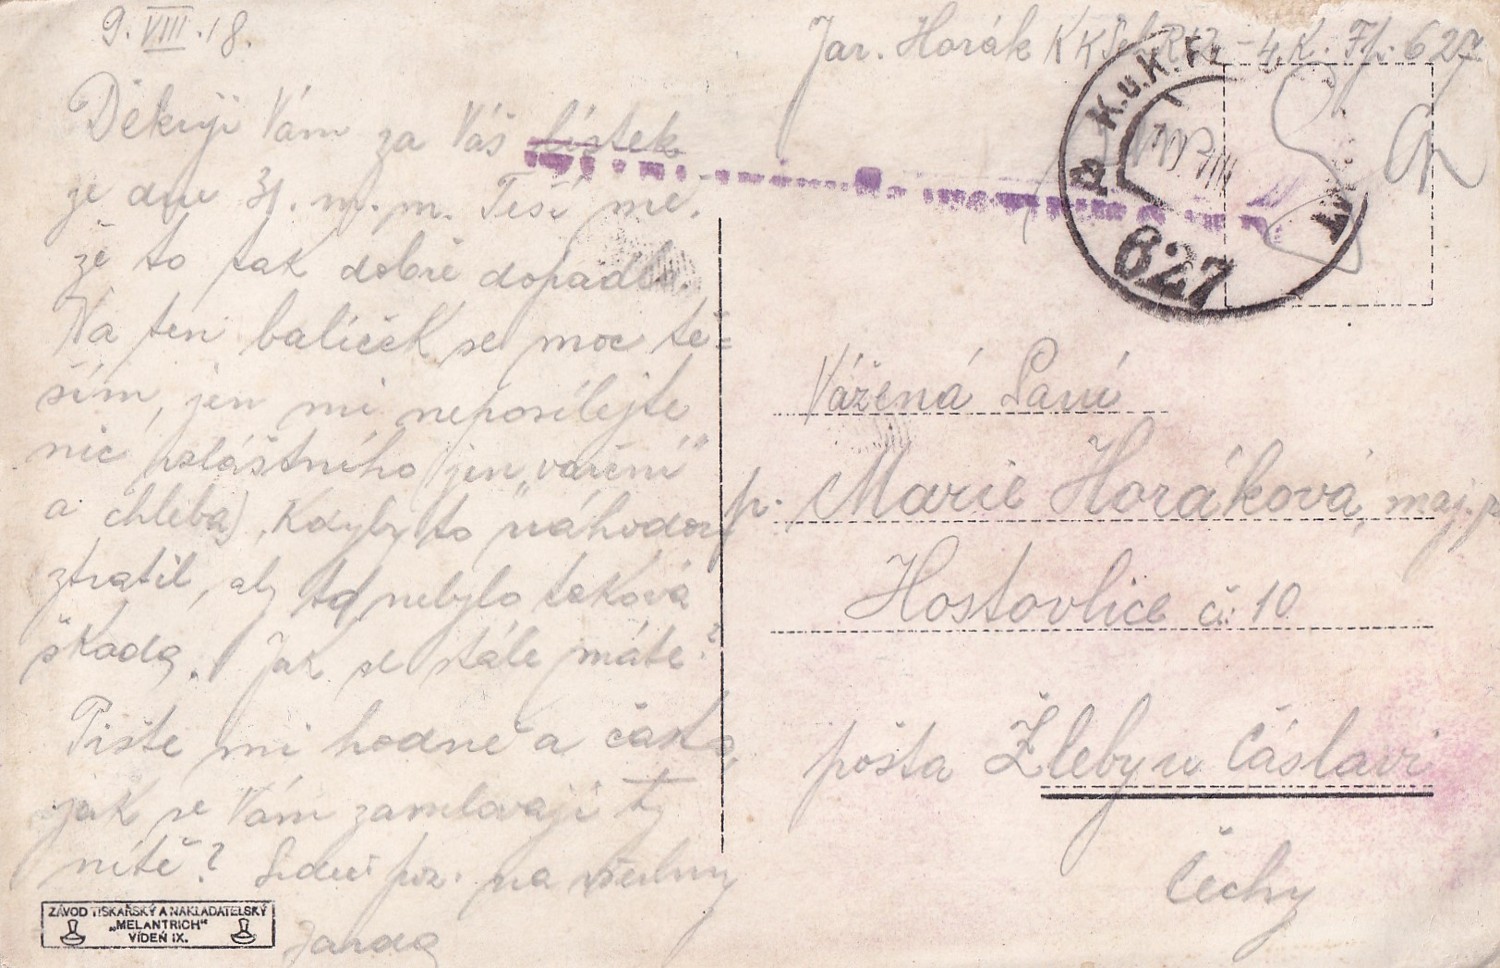 9. VIII. 18.
Jar. Horák K K Sch R 12 - 4. K. Fp. 627
Děkuji Vám za Váš lístek
ze dne 31. m. m. Těší mě,
že to tak dobře dopadlo.
Na ten balíček se moc tě=
ším, jen mi neposílejte
nic zvláštního jen „vaření"
a chleba). Kdyby to náhodou
ztratil, aby to nebylo taková
škoda. Jak se stále máte?
Pište mi hodně a často,
jak se Vám zamlouvají ty
nítě? Srdeč. poz. na všechny
Jarda
K.u.K. F
627
Vážená Paní
p. Marie Horáková, maj. p
Hostovlice č. 10
pošta Žleby u Čáslavi
Čechy
ZÁVOD TISKAŘSKÝ A NAKLADATELSKÝ
„MELANTRICH"
VÍDEŇ IX.